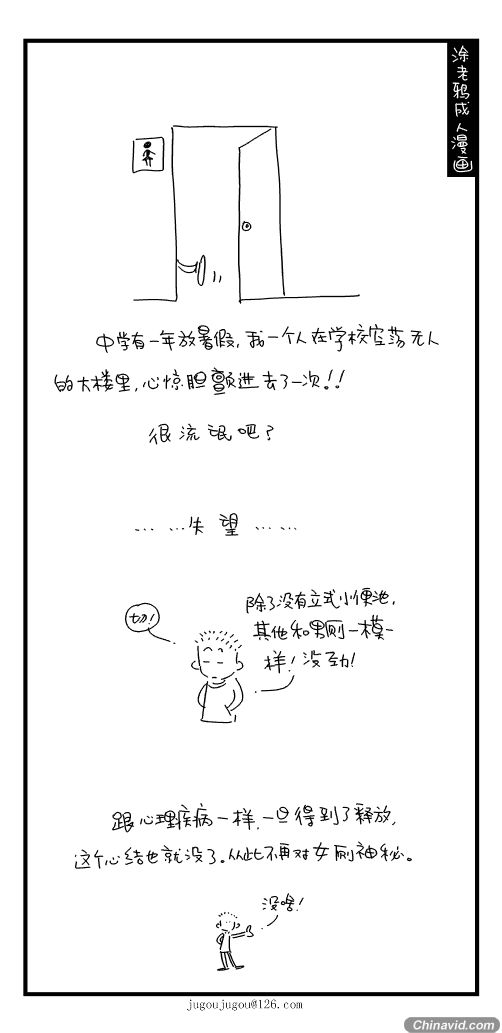 涂老鸦成人漫画
中学有一年放暑假,我一个人在学校空荡无人
的大楼里,心惊胆颤进去了一次!!
很流氓吧?
... ...失望... ...
切!
除了没有立式小便池,
其他和男厕一模一
样!没劲!
跟心理疾病一样,一旦得到了释放,
这个心结也就没了。从此不再对女厕神秘。
没啥!
jugoujugou@126.com
Chinavid.com